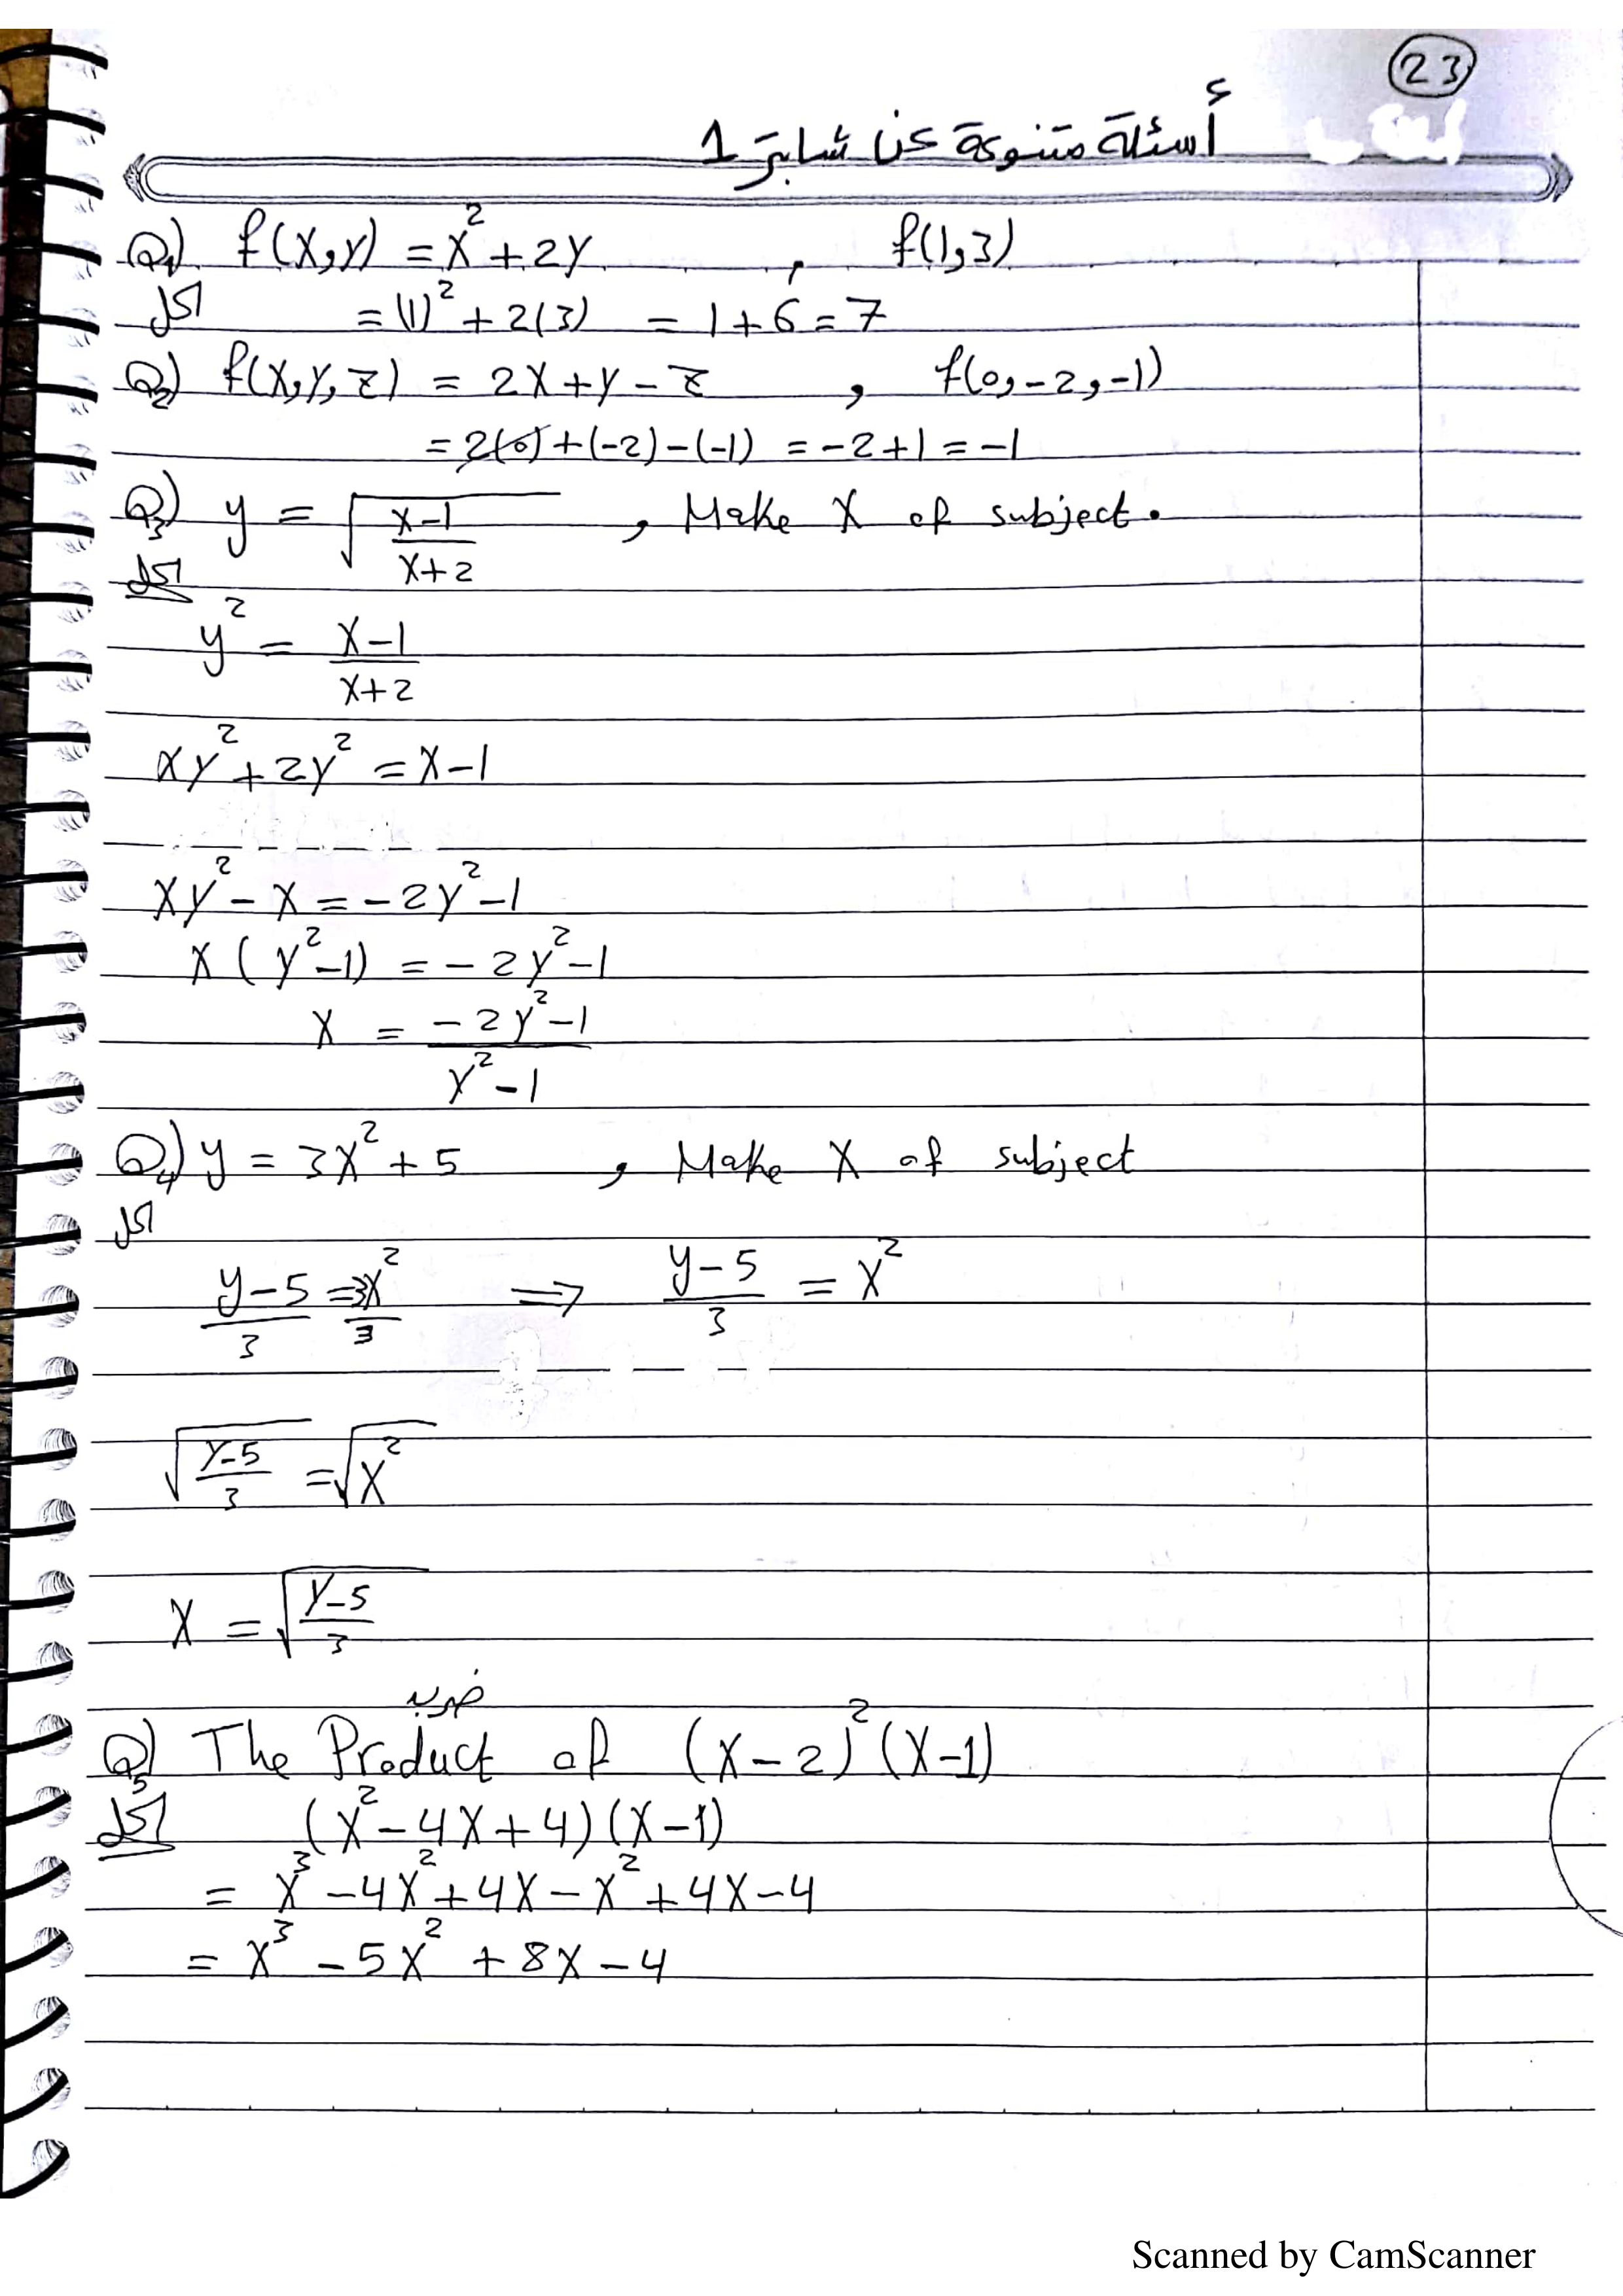 23
أسئلة متنوعة عن شابتر 1
Q1) f(x,y) = x² + 2y , f(1,3)
الحل = (1)² + 2(3) = 1 + 6 = 7
Q2) f(x,y,z) = 2x + y - z , f(0,-2,-1)
= 2(0) + (-2) - (-1) = -2 + 1 = -1
Q3) y = √((x-1)/(x+2)) , Make X of subject.
الحل
y² = (x-1)/(x+2)
xy² + 2y² = x - 1
xy² - x = -2y² - 1
x(y² - 1) = -2y² - 1
x = (-2y² - 1)/(y² - 1)
Q4) y = 3x² + 5 , Make X of subject
الحل
(y-5)/3 = 3x²/3 ⇒ (y-5)/3 = x²
√((y-5)/3) = √x²
x = √((y-5)/3)
ضرب
Q5) The Product of (x-2)²(x-1)
الحل (x² - 4x + 4)(x-1)
= x³ - 4x² + 4x - x² + 4x - 4
= x³ - 5x² + 8x - 4
Scanned by CamScanner